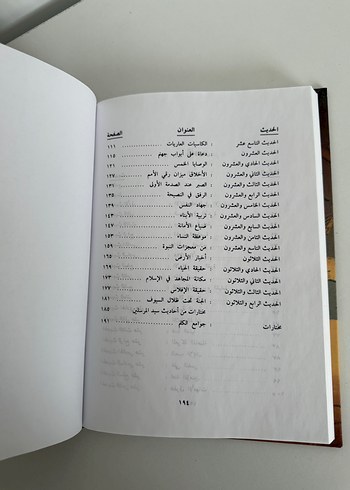 الحديث العنوان الصفحة
الحديث التاسع عشر : الكاسيات العاريات ............ ١١١
الحديث العشرون : دعاة على أبواب جهنم ............ ١١٥
الحديث الحادي والعشرون : الوصايا الخمس ............ ١٢١
الحديث الثاني والعشرون : الأخلاق ميزان رقي الأمم ............ ١٢٧
الحديث الثالث والعشرون : الصبر عند الصدمة الأولى ............ ١٣١
الحديث الرابع والعشرون : الرفق في النصيحة ............ ١٣٥
الحديث الخامس والعشرون : جهاد النفس ............ ١٣٩
الحديث السادس والعشرون : تربية الأبناء ............ ١٤٣
الحديث السابع والعشرون : ضياع الأمانة ............ ١٤٧
الحديث الثامن والعشرون : موعظة النساء ............ ١٥٣
الحديث التاسع والعشرون : من معجزات النبوة ............ ١٥٩
الحديث الثلاثون : أخبار الأرض ............ ١٦٥
الحديث الحادي والثلاثون : حقيقة الحياء ............ ١٦٩
الحديث الثاني والثلاثون : مكانة المجاهد في الإسلام ............ ١٧٣
الحديث الثالث والثلاثون : حقيقة الإفلاس ............ ١٧٧
الحديث الرابع والثلاثون : الجنة تحت ظلال السيوف ............ ١٨١
مختارات من أحاديث سيد المرسلين ............ ١٨٥
مختارات : جوامع الكلم ............ ١٩١
١٩٤